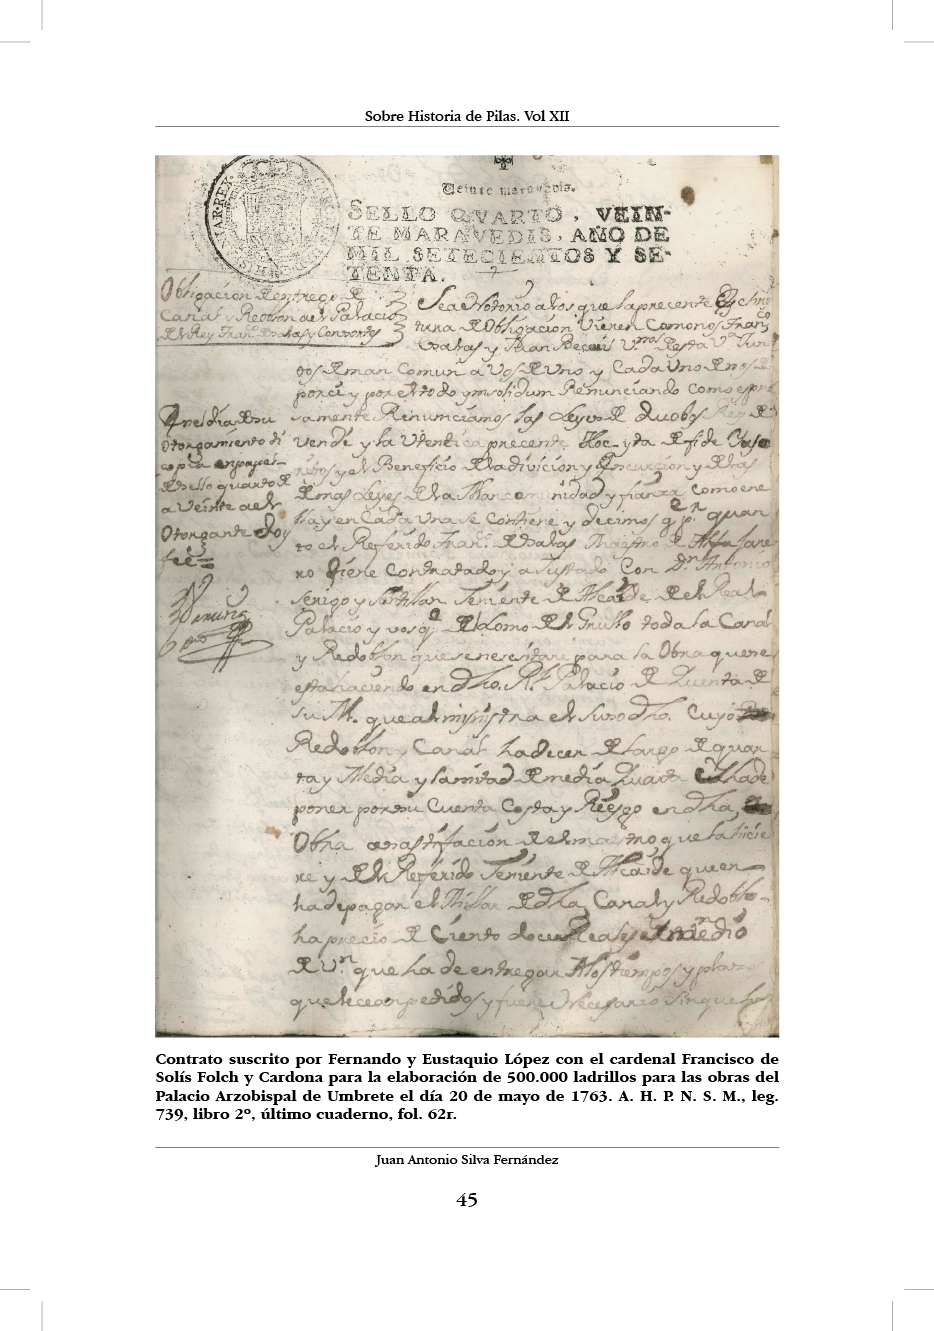 Sobre Historia de Pilas. Vol XII
Veinte maravedis.
SELLO QVARTO, VEIN-
TE MARAVEDIS, AÑO DE
MIL SETECIENTOS Y SE-
TENTA.
Obligacion de entrego de
Canal y Redoblon a el Palacio
del Rey Fran.co
Sea Notorio a los que la precente
tura de Obligacion Vieren Como nos Fran.co
y Juan v.nos de esta V.a Jun
tos de man Comun a Vos de Uno y Cada Uno de nos de
por ci y por el todo yn solidum Renunciando como espre
samente Renunciamos las Leyes de duobus Rey de
vendi y la Utentica precente Hoc yta de fide
y el Beneficio de la divicion y Ejecucion y
demas Leyes de la Mancomunidad y fianza como en e
llas y en Cada Una se Contiene y decimos q.e p.r quan
to el Referido Fran.co Maestro de Alfajare
ro tiene Contratado y a Justado Con D.n Antonio
Teniente de Alcaide de el Real
Palacio y del Lomo del Grullo toda la Canal
y Redoblon que se nesesitare para la Obra que se
esta haciendo en dho. R.l Palacio de Quenta de
su M. que administra el suso dho. Cuyo
Redoblon y Canal ha de cer de largo de quar
ta y Media y la mitad de media Quarta
poner por su Cuenta Costa y Riesgo en dha
Obra a satisfacion de el maestro que la hicie
re y del Referido Teniente de Alcaide quien
ha de pagar el Millar de dha Canal y Redoblon
ha precio de Ciento doce Reales y medio
de V.n que ha de entregar A los tiempos y plazos
que le cean pedidos y fuere Necesario sin que
En el dia de su
Otorgamiento di
copia en papel
del sello quarto de
a Veinte a el
Otorgante doy
fee=
Contrato suscrito por Fernando y Eustaquio López con el cardenal Francisco de
Solís Folch y Cardona para la elaboración de 500.000 ladrillos para las obras del
Palacio Arzobispal de Umbrete el día 20 de mayo de 1763. A. H. P. N. S. M., leg.
739, libro 2º, último cuaderno, fol. 62r.
Juan Antonio Silva Fernández
45